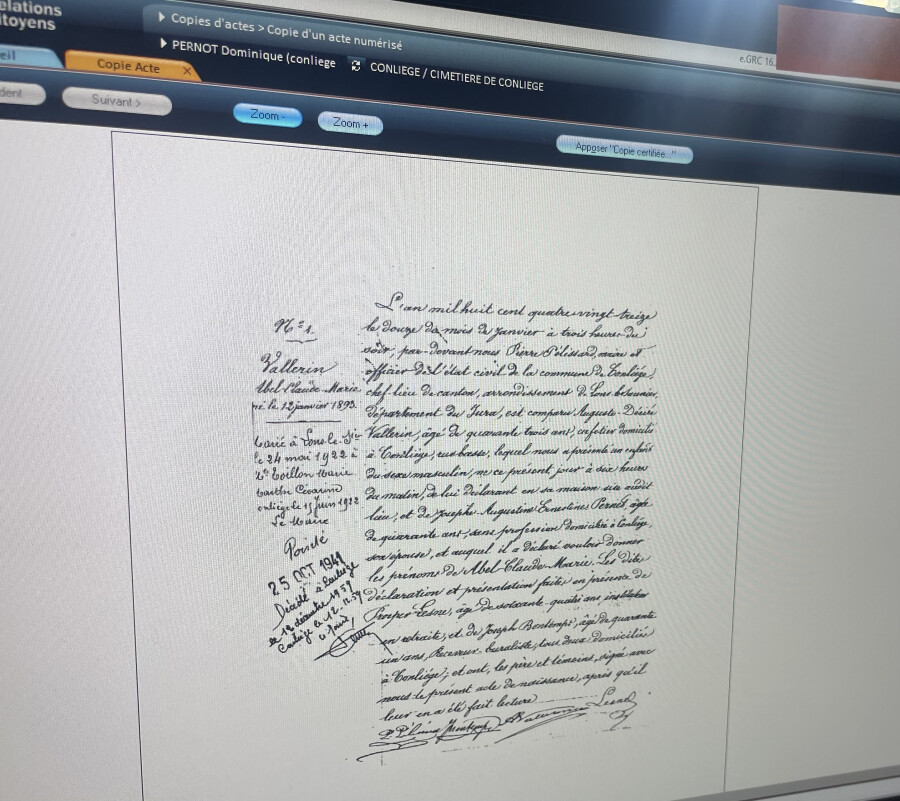 elations
itoyens
Copies d'actes > Copie d'un acte numérisé
PERNOT Dominique (conliege
CONLIEGE / CIMETIERE DE CONLIEGE
e.GRC 16.
eil
Copie Acte
dent
Suivant >
Zoom -
Zoom +
Apposer "Copie certifiée..."
N° 1.
Vallerin
Abel Claude Marie
né le 12 janvier 1893.
Marié à Lons-le-
le 24 mai 1922 à
Marie
Conliège le 15 juin 1922
Le Maire
25 OCT 1941
Décédé à Conliège
le 12 décembre 1959
Conliège le 12.12.59
L'an mil huit cent quatre-vingt-treize
le douze du mois de Janvier à trois heures du
soir, par-devant nous Pierre Pélissard, maire et
officier de l'état civil de la commune de Conliège,
chef-lieu de canton, arrondissement de Lons-le-Saunier,
département du Jura, est comparu Auguste-Désiré
Vallerin, âgé de quarante trois ans, cafetier domicilié
à Conliège, rue basse, lequel nous a présenté un enfant
du sexe masculin, né ce présent jour à six heures
du matin, de lui déclarant en sa maison sise audit
lieu, et de Josephe Augustine Ernestine Pernot, âgée
de quarante ans, sans profession domiciliée à Conliège,
son épouse, et auquel il a déclaré vouloir donner
les prénoms de Abel-Claude-Marie. Les dites
déclaration et présentation faites en présence de
Prosper Lesne, âgé de soixante-quatre ans, instituteur
en retraite, et de Joseph Bontemps, âgé de quarante
un ans, Receveur-buraliste, tous deux domiciliés
à Conliège; et ont, les père et témoins, signé avec
nous le présent acte de naissance, après qu'il
leur en a été fait lecture